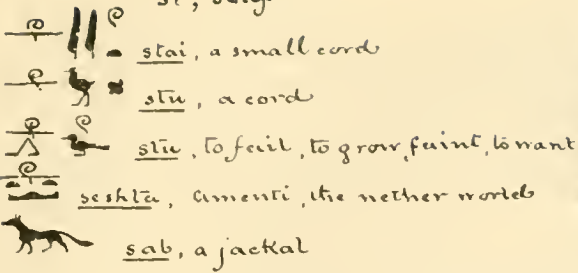 stai, a small cord
stū, a cord
stū, to fail, to grow faint, to want
seshta, Amenti, the nether world
sab, a jackal